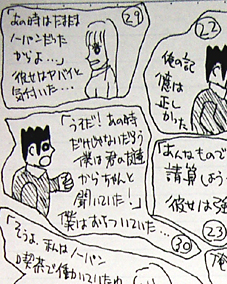 29
「あの時はたまたま
ノーパンだった
からよ…」
彼女はヤバイと
気付いた…
22
俺の記
憶は
正し
かった
「うそだ!あの時
だけじゃないだろう
僕は君の友達
からちゃんと
聞いていた!」
僕はおちついていた…
30
「あんなもので
請算しよう
彼女は強
23
「そうよ、私はノーパン
喫茶で働いていたわ
俺